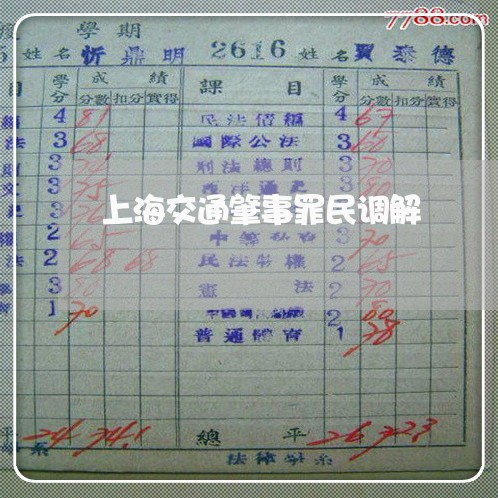 7788.com
學期
姓名 忻鼎明 2616 姓名 賈泰德
目 學分 成績 課目 學分 成績
分數 扣分 實得 分數 扣分 實得
4 81 民法債編 4 67
法 3 68 國際公法 3 60
3 刑法總則 3 70
文 3 75 西洋通史 3 80
上海交通肇事罪民调解
3 76
2 65 3 70
法 2 68 68 民法物權 2 65
3 80 憲法 2 70
育 1 70 2 80
普通體育 1 78
平 24 74.1 總平 26 72.3
系 法律學系